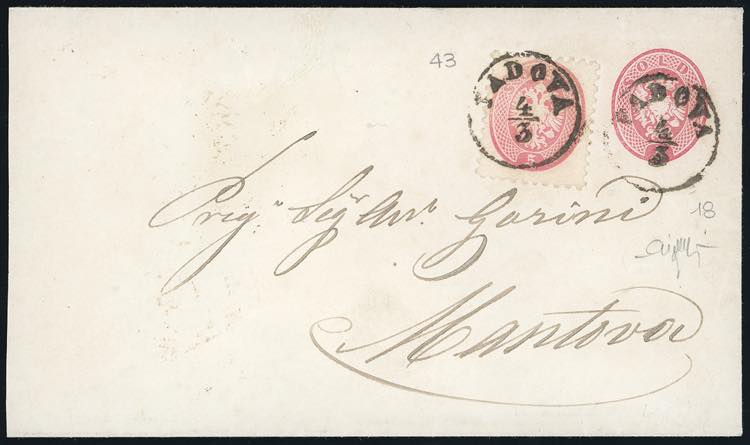 43
PADOVA
4/3
5
SOLDI
PADOVA
4/3
Preg. Sigr Avv. Gorini
18
Mantova